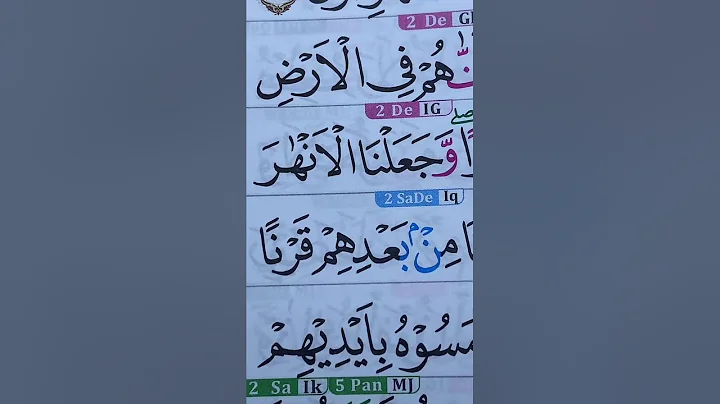 2 De
نّٰهُمْ فِى الْاَرْضِ
2 De IG
وَّجَعَلْنَا الْاَنْهٰرَ
2 SaDe Iq
مِنْۢ بَعْدِهِمْ قَرْنًا
مَسُوْهُ بِاَيْدِيْهِمْ
2 Sa Ik 5 Pan MJ